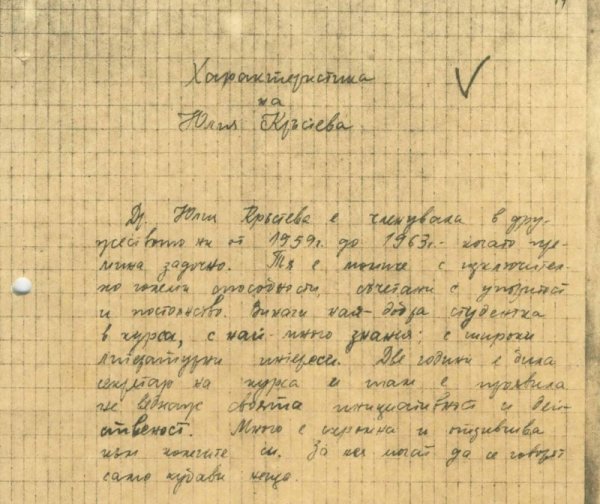 Характеристика
на
Юлия Кръстева
Др. Юлия Кръстева е членувала в дру-
жеството ни от 1959г. до 1963г. когато пре-
мина задочно. Тя е момиче с изключител-
но големи способности, съчетани с упоритост
и постоянство. Винаги най-добра студентка
в курса, с най-много знания; с широки
литературни интереси. Две години е била
секретар на курса и там е проявила
не веднъж своята инициативност и дей-
ственост. Много е скромна и отзивчива
към колегите си. За нея могат да се говорят
само хубави неща.